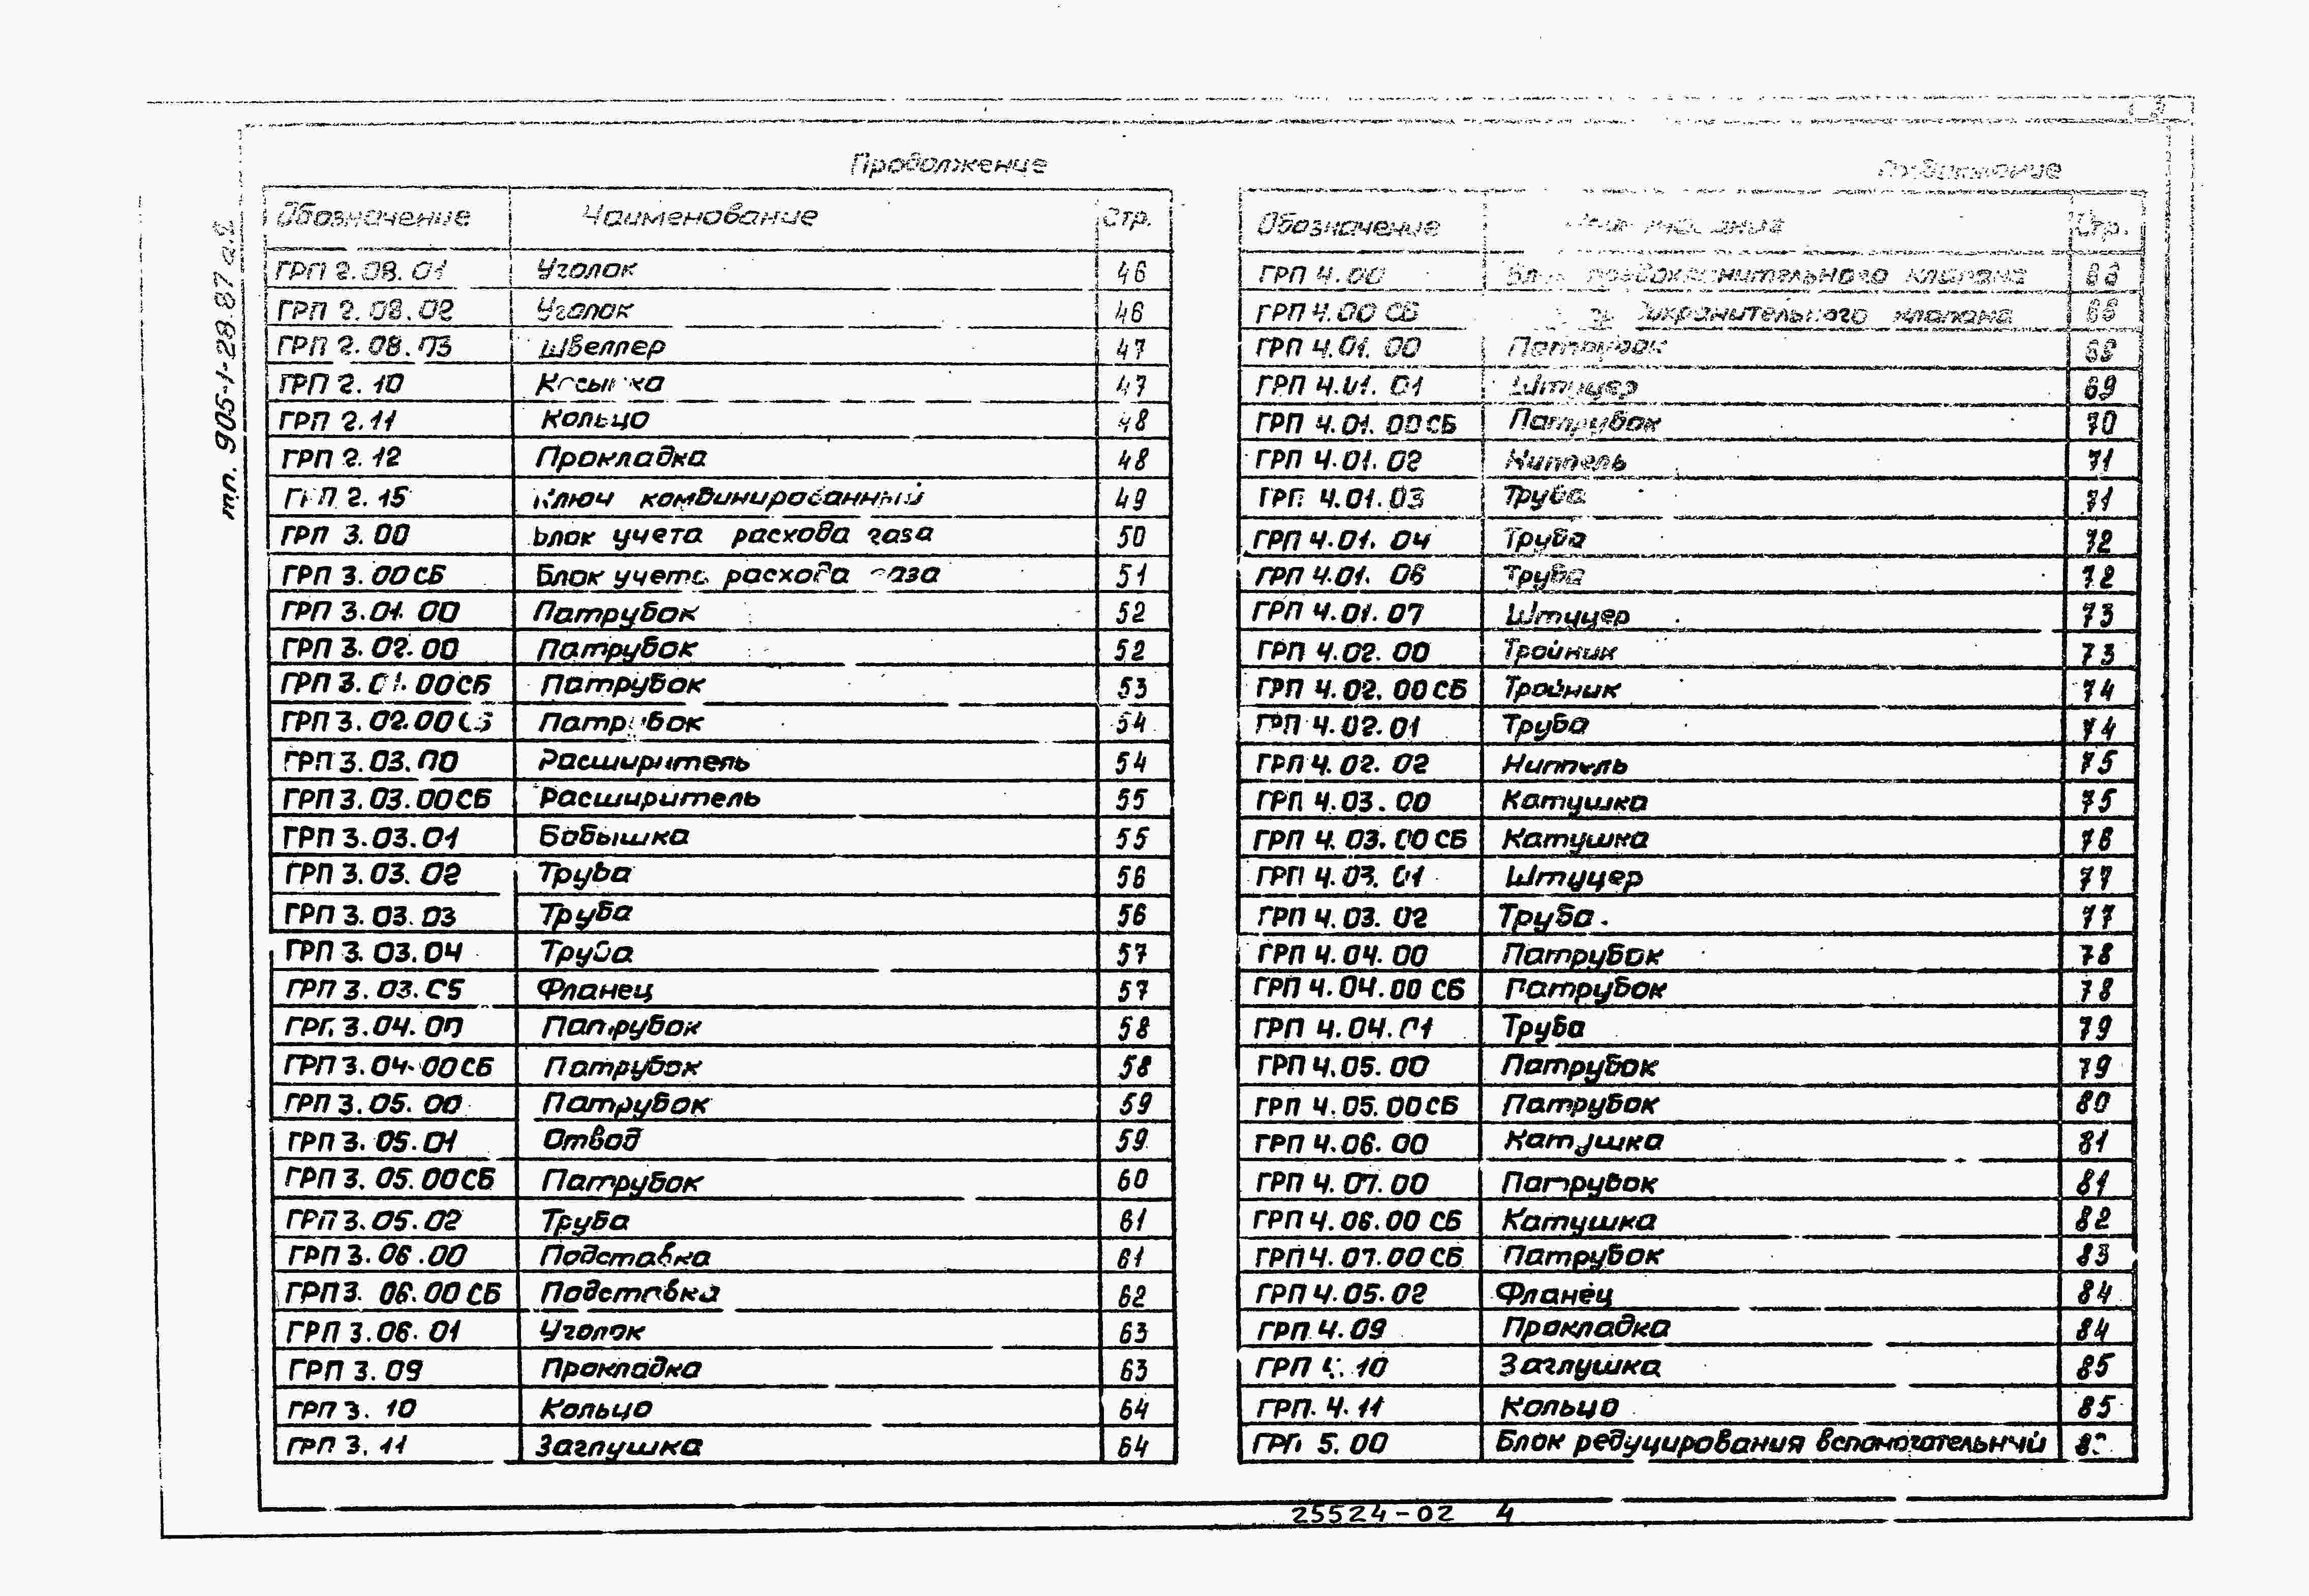 т.п. 905-1-28 87 а.2
Продолжение
Обозначение Наименование Стр.
ГРП 2.08.01 Уголок 46
ГРП 2.08.02 Уголок 46
ГРП 2.08.03 Швеллер 47
ГРП 2.10 Косынка 47
ГРП 2.11 Кольцо 48
ГРП 2.12 Прокладка 48
ГРП 2.15 Ключ комбинированный 49
ГРП 3.00 Блок учета расхода газа 50
ГРП 3.00СБ Блок учета расхода газа 51
ГРП 3.01.00 Патрубок 52
ГРП 3.02.00 Патрубок 52
ГРП 3.01.00СБ Патрубок 53
ГРП 3.02.00СБ Патрубок 54
ГРП 3.03.00 Расширитель 54
ГРП 3.03.00СБ Расширитель 55
ГРП 3.03.01 Бобышка 55
ГРП 3.03.02 Труба 56
ГРП 3.03.03 Труба 56
ГРП 3.03.04 Труба 57
ГРП 3.03.05 Фланец 57
ГРП 3.04.00 Патрубок 58
ГРП 3.04.00СБ Патрубок 58
ГРП 3.05.00 Патрубок 59
ГРП 3.05.01 Отвод 59
ГРП 3.05.00СБ Патрубок 60
ГРП 3.05.02 Труба 61
ГРП 3.06.00 Подставка 61
ГРП 3.06.00СБ Подставка 62
ГРП 3.06.01 Уголок 63
ГРП 3.09 Прокладка 63
ГРП 3.10 Кольцо 64
ГРП 3.11 Заглушка 64
Обозначение Стр.
ГРП 4.00 клапана
ГРП 4.00 СБ клапана
ГРП 4.01.00 Патрубок 68
ГРП 4.01.01 Штуцер 69
ГРП 4.01.00СБ Патрубок 70
ГРП 4.01.02 Ниппель 71
ГРП 4.01.03 Труба 71
ГРП 4.01.04 Труба 72
ГРП 4.01.06 Труба 72
ГРП 4.01.07 Штуцер 73
ГРП 4.02.00 Тройник 73
ГРП 4.02.00СБ Тройник 74
ГРП 4.02.01 Труба 74
ГРП 4.02.02 Ниппель 75
ГРП 4.03.00 Катушка 75
ГРП 4.03.00СБ Катушка 76
ГРП 4.03.01 Штуцер 77
ГРП 4.03.02 Труба. 77
ГРП 4.04.00 Патрубок 78
ГРП 4.04.00 СБ Патрубок 78
ГРП 4.04.01 Труба 79
ГРП 4.05.00 Патрубок 79
ГРП 4.05.00СБ Патрубок 80
ГРП 4.06.00 Катушка 81
ГРП 4.07.00 Патрубок 81
ГРП 4.06.00 СБ Катушка 82
ГРП 4.07.00СБ Патрубок 83
ГРП 4.05.02 Фланец 84
ГРП 4.09 Прокладка 84
ГРП 4.10 Заглушка 85
ГРП. 4.11 Кольцо 85
ГРП 5.00 Блок редуцирования вспомогательный
25524-02 4